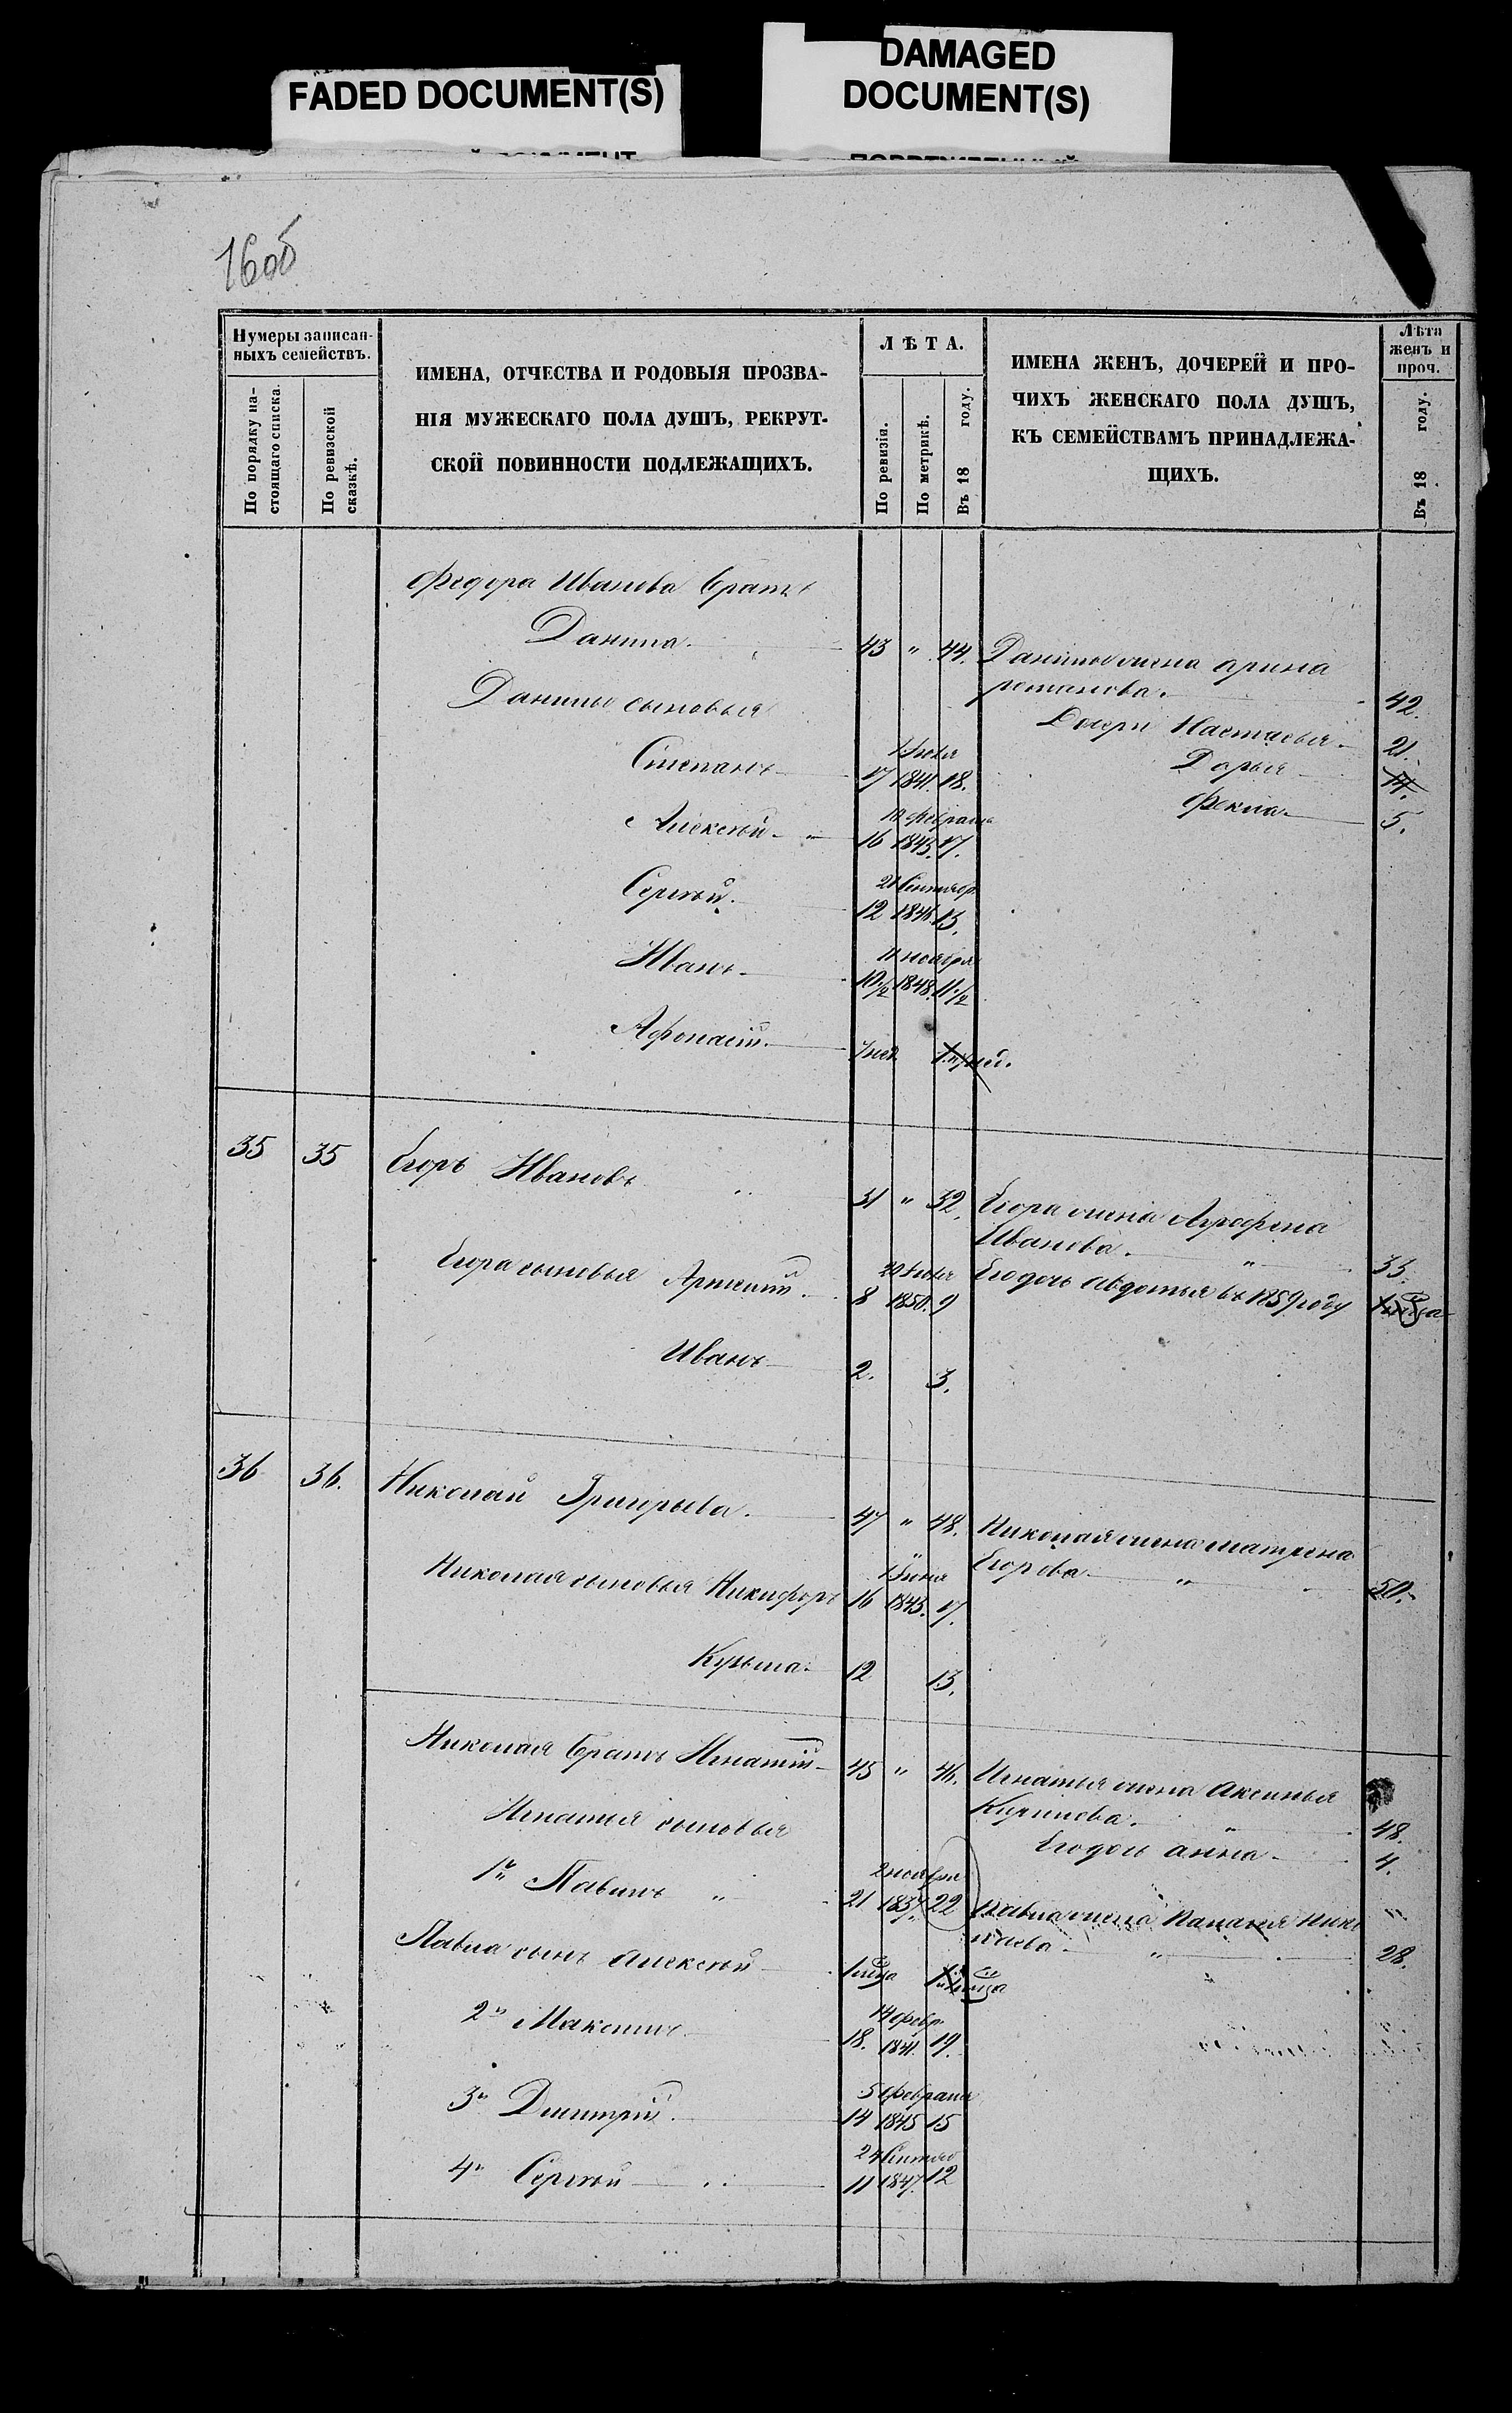 FADED DOCUMENT(S)
DAMAGED
DOCUMENT(S)
16об
Нумеры записан-
ныхъ семействъ.
По порядку на-
стоящаго списка.
По ревизской
сказкѣ.
ИМЕНА, ОТЧЕСТВА И РОДОВЫЯ ПРОЗВА-
НІЯ МУЖЕСКАГО ПОЛА ДУШЪ, РЕКРУТ-
СКОЙ ПОВИННОСТИ ПОДЛЕЖАЩИХЪ.
ЛѢТА.
По ревизіи.
По метрикѣ.
Въ 18 году.
ИМЕНА ЖЕНЪ, ДОЧЕРЕЙ И ПРО-
ЧИХЪ ЖЕНСКАГО ПОЛА ДУШЪ,
КЪ СЕМЕЙСТВАМЪ ПРИНАДЛЕЖА-
ЩИХЪ.
Лѣта
женъ и
проч.
Въ 18 году.
Федора Иванова братъ
Данила. 43 " 44. Данилы жена арина
романова. 42.
Данилы сыновья
Дочери Настасья 21.
1. Іюля
Степанъ 17 1841. 18. Дарья 14.
18 февраля
Алексѣй " 16 1843. 17. Фекла 5.
21 Сентябр.
Сергѣй. 12 1846 13.
11 ноября
Иванъ 10½ 1848. 11½
Афонасій. 7 нед.
35 35 Егоръ Ивановъ 31 " 32. Егора жена Агрофена
Иванова. " 33.
20 Іюля
Егора сыновья Артемій. 8 1850. 9 Его дочь Авдотья въ 1859 году
Иванъ 2. 3.
36 36. Николай Григорьева. 47 " 48. Николая жена матрена
Егорова " 50.
Николая сыновья Никифоръ 16 1843. 17.
Кузьма. 12 13.
Николая братъ Игнатій 45 " 46. Игнатья жена Аксинья
Кирилова. " 48.
Игнатья сыновья
Его дочь анна 4.
2 ноября
1й Павелъ " 21 1837. 22 Павла жена Палагея Нико
лаева " 28.
Павла сынъ алексѣй
14 февр.
2й Максимъ. 18. 1841. 19.
5 февраля
3й Дмитрій. 14 1845 15
24 Сентяб
4й Сергѣй 11 1847. 12